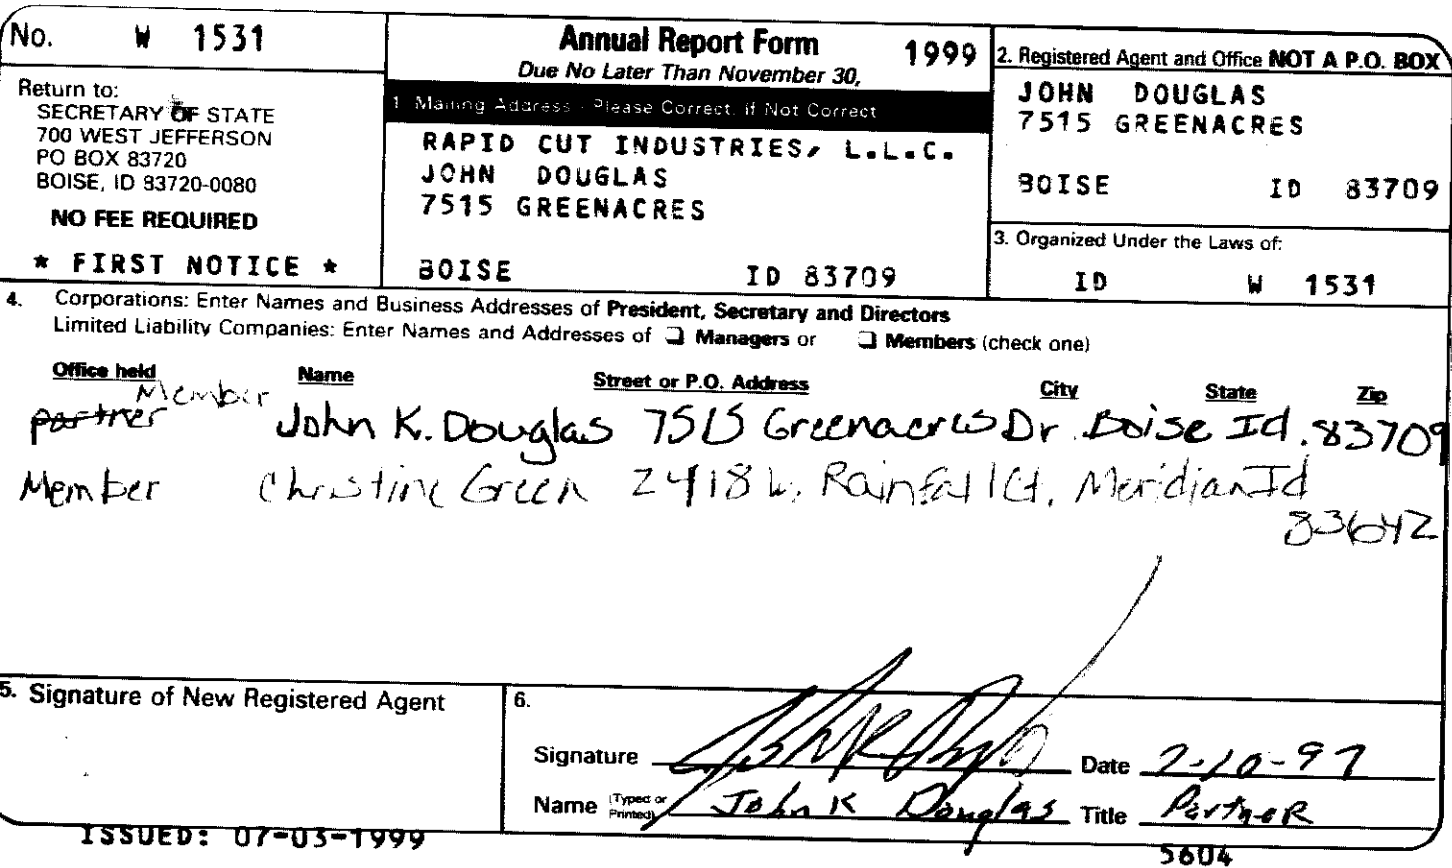 No. W 1531
Annual Report Form 1999
Due No Later Than November 30,
Return to:
SECRETARY OF STATE
700 WEST JEFFERSON
PO BOX 83720
BOISE, ID 83720-0080
NO FEE REQUIRED
* FIRST NOTICE *
1. Mailing Address - Please Correct, If Not Correct
RAPID CUT INDUSTRIES, L.L.C.
JOHN DOUGLAS
7515 GREENACRES
BOISE ID 83709
2. Registered Agent and Office NOT A P.O. BOX
JOHN DOUGLAS
7515 GREENACRES
BOISE ID 83709
3. Organized Under the Laws of:
ID W 1531
4. Corporations: Enter Names and Business Addresses of President, Secretary and Directors
Limited Liability Companies: Enter Names and Addresses of ❑ Managers or ❑ Members (check one)
Office held Name Street or P.O. Address City State Zip
Member
partner John K. Douglas 7515 Greenacres Dr. Boise Id. 83709
Member Christine Green 2418 W. Rainfall Ct. Meridian Id
83642
5. Signature of New Registered Agent
6.
Signature John K Douglas Date 2-10-97
Name (Typed or Printed) John K Douglas Title Partner
ISSUED: 07-03-1999
5604